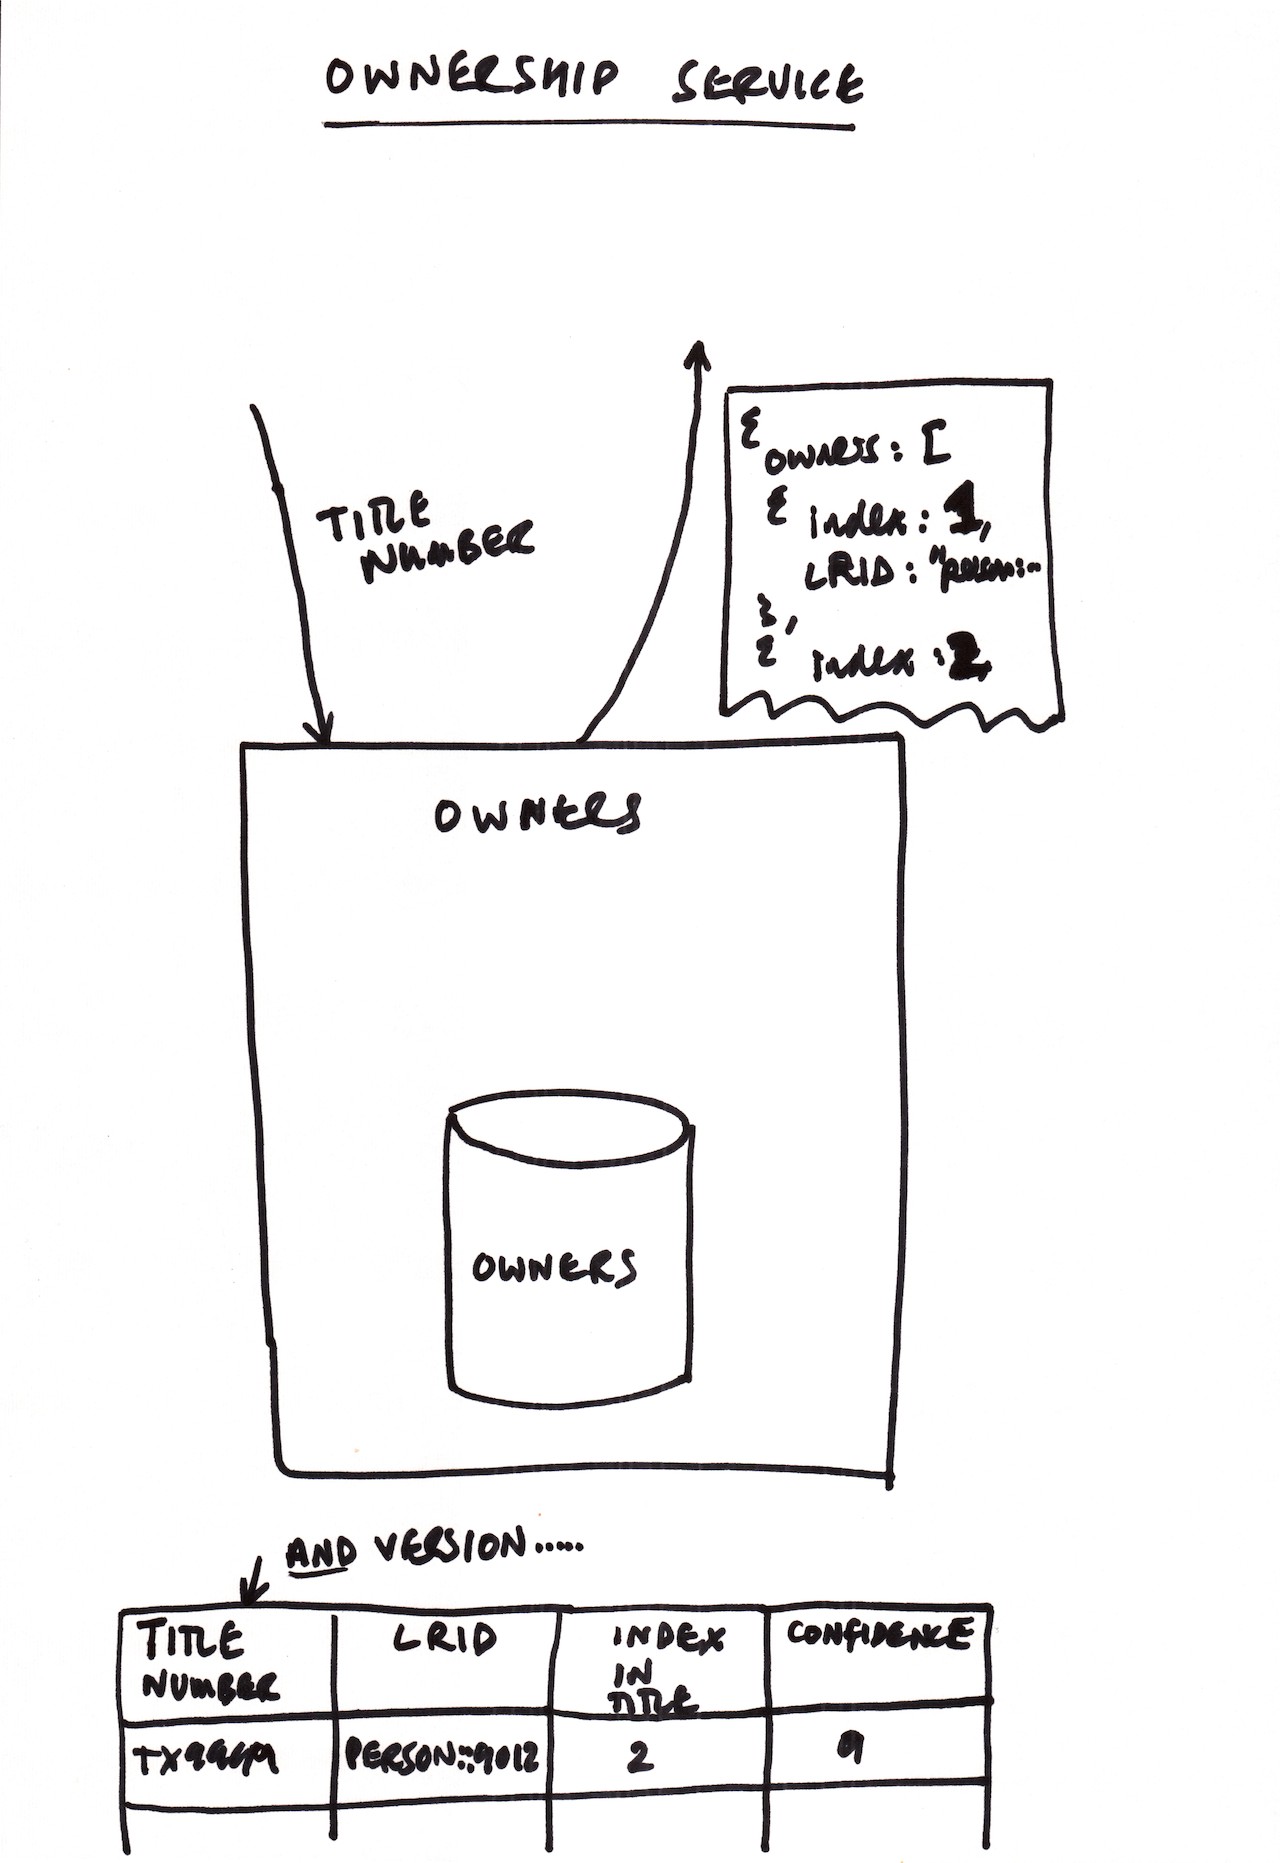 OWNERSHIP SERVICE
TITLE
NUMBER
{
OWNERS: [
{ index: 1,
LRID: "person:..
},
{ index: 2,
OWNERS
OWNERS
AND VERSION.....
TITLE
NUMBER
LRID
INDEX
IN
TITLE
CONFIDENCE
PERSON::9012
2
9